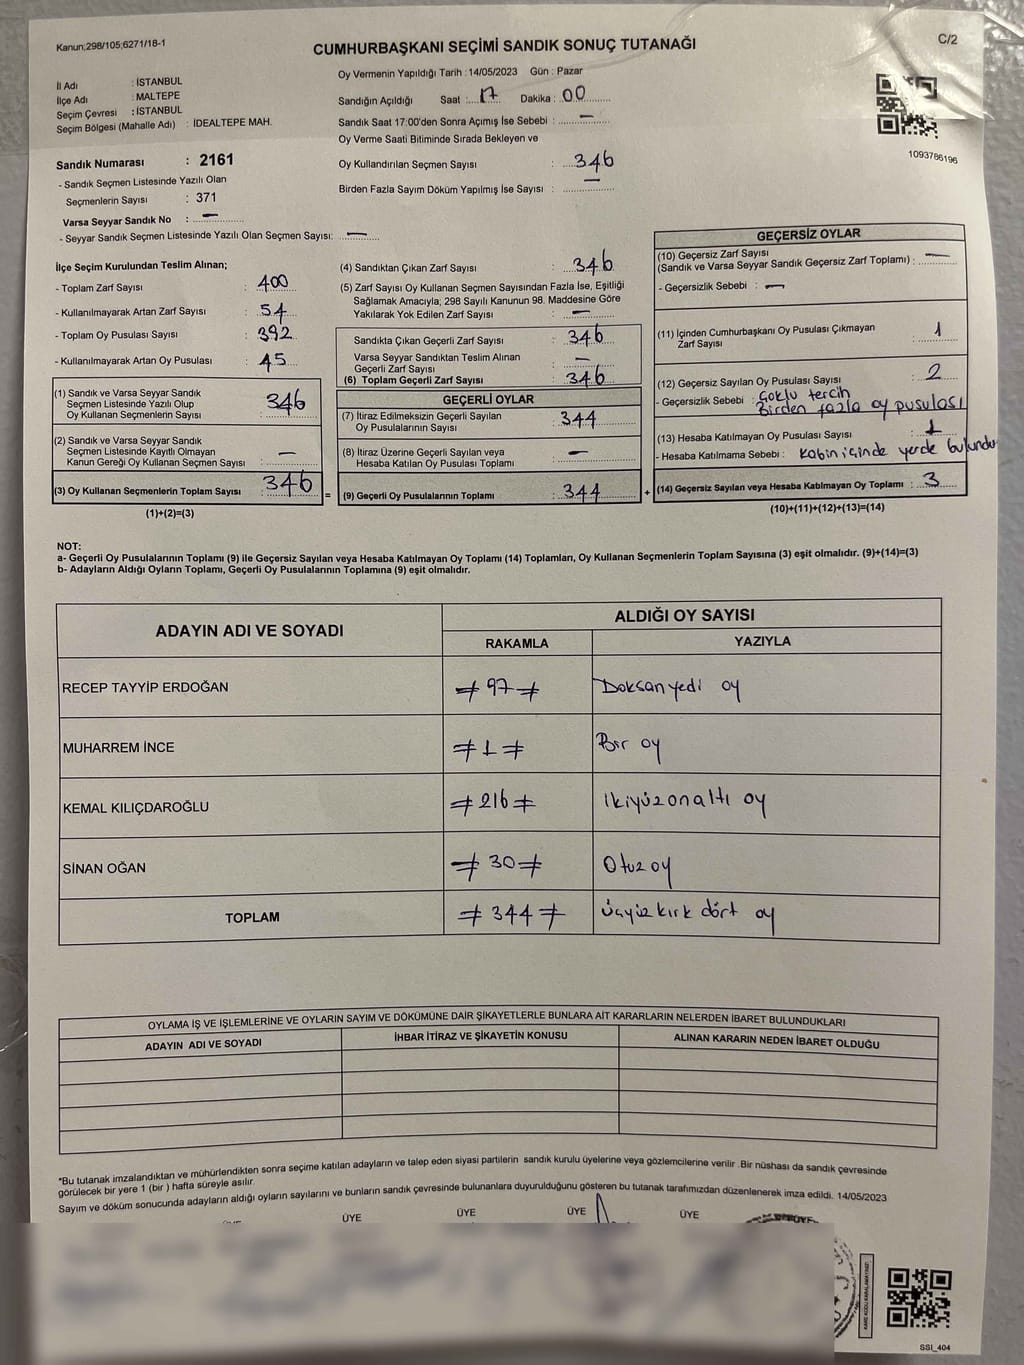 Kanun;298/105;6271/18-1
CUMHURBAŞKANI SEÇİMİ SANDIK SONUÇ TUTANAĞI
C/2
İl Adı : İSTANBUL
İlçe Adı : MALTEPE
Seçim Çevresi : İSTANBUL
Seçim Bölgesi (Mahalle Adı) : İDEALTEPE MAH.
Sandık Numarası : 2161
- Sandık Seçmen Listesinde Yazılı Olan
Seçmenlerin Sayısı : 371
Varsa Seyyar Sandık No : —
- Seyyar Sandık Seçmen Listesinde Yazılı Olan Seçmen Sayısı: —
Oy Vermenin Yapıldığı Tarih : 14/05/2023 Gün : Pazar
Sandığın Açıldığı Saat : 17 Dakika : 00
Sandık Saat 17:00'den Sonra Açımış İse Sebebi : —
Oy Verme Saati Bitiminde Sırada Bekleyen ve
Oy Kullandırılan Seçmen Sayısı : 346
Birden Fazla Sayım Döküm Yapılmış İse Sayısı : —
1093766196
İlçe Seçim Kurulundan Teslim Alınan;
- Toplam Zarf Sayısı : 400
- Kullanılmayarak Artan Zarf Sayısı : 54
- Toplam Oy Pusulası Sayısı : 392
- Kullanılmayarak Artan Oy Pusulası : 45
(1) Sandık ve Varsa Seyyar Sandık
Seçmen Listesinde Yazılı Olup
Oy Kullanan Seçmenlerin Sayısı : 346
(2) Sandık ve Varsa Seyyar Sandık
Seçmen Listesinde Kayıtlı Olmayan
Kanun Gereği Oy Kullanan Seçmen Sayısı : —
(3) Oy Kullanan Seçmenlerin Toplam Sayısı : 346
(1)+(2)=(3)
(4) Sandıktan Çıkan Zarf Sayısı : 346
(5) Zarf Sayısı Oy Kullanan Seçmen Sayısından Fazla İse, Eşitliği
Sağlamak Amacıyla; 298 Sayılı Kanunun 98. Maddesine Göre
Yakılarak Yok Edilen Zarf Sayısı : —
Sandıkta Çıkan Geçerli Zarf Sayısı : 346
Varsa Seyyar Sandıktan Teslim Alınan
Geçerli Zarf Sayısı : —
(6) Toplam Geçerli Zarf Sayısı : 346
GEÇERLİ OYLAR
(7) İtiraz Edilmeksizin Geçerli Sayılan
Oy Pusulalarının Sayısı : 344
(8) İtiraz Üzerine Geçerli Sayılan veya
Hesaba Katılan Oy Pusulası Toplamı : —
= (9) Geçerli Oy Pusulalarının Toplamı : 344
GEÇERSİZ OYLAR
(10) Geçersiz Zarf Sayısı
(Sandık ve Varsa Seyyar Sandık Geçersiz Zarf Toplamı) : —
- Geçersizlik Sebebi : —
(11) İçinden Cumhurbaşkanı Oy Pusulası Çıkmayan
Zarf Sayısı : 1
(12) Geçersiz Sayılan Oy Pusulası Sayısı : 2
- Geçersizlik Sebebi : Çoklu tercih
Birden fazla oy pusulası
(13) Hesaba Katılmayan Oy Pusulası Sayısı : 1
- Hesaba Katılmama Sebebi : Kabin içinde yerde bulundu
+ (14) Geçersiz Sayılan veya Hesaba Katılmayan Oy Toplamı : 3
(10)+(11)+(12)+(13)=(14)
NOT:
a- Geçerli Oy Pusulalarının Toplamı (9) ile Geçersiz Sayılan veya Hesaba Katılmayan Oy Toplamı (14) Toplamları, Oy Kullanan Seçmenlerin Toplam Sayısına (3) eşit olmalıdır. (9)+(14)=(3)
b- Adayların Aldığı Oyların Toplamı, Geçerli Oy Pusulalarının Toplamına (9) eşit olmalıdır.
ADAYIN ADI VE SOYADI
ALDIĞI OY SAYISI
RAKAMLA YAZIYLA
RECEP TAYYİP ERDOĞAN ≠ 97 ≠ Doksan yedi oy
MUHARREM İNCE ≠ 1 ≠ Bir oy
KEMAL KILIÇDAROĞLU ≠ 216 ≠ İkiyüzonaltı oy
SİNAN OĞAN ≠ 30 ≠ Otuz oy
TOPLAM ≠ 344 ≠ Üçyüz kırk dört oy
OYLAMA İŞ VE İŞLEMLERİNE VE OYLARIN SAYIM VE DÖKÜMÜNE DAİR ŞİKAYETLERLE BUNLARA AİT KARARLARIN NELERDEN İBARET BULUNDUKLARI
ADAYIN ADI VE SOYADI İHBAR İTİRAZ VE ŞİKAYETİN KONUSU ALINAN KARARIN NEDEN İBARET OLDUĞU
*Bu tutanak imzalandıktan ve mühürlendikten sonra seçime katılan adayların ve talep eden siyasi partilerin sandık kurulu üyelerine veya gözlemcilerine verilir .Bir nüshası da sandık çevresinde
görülecek bir yere 1 (bir ) hafta süreyle asılır.
Sayım ve döküm sonucunda adayların aldığı oyların sayılarını ve bunların sandık çevresinde bulunanlara duyurulduğunu gösteren bu tutanak tarafımızdan düzenlenerek imza edildi. 14/05/2023
ÜYE ÜYE ÜYE ÜYE
KARE KODU KARALAMAYINIZ!
SSI_404